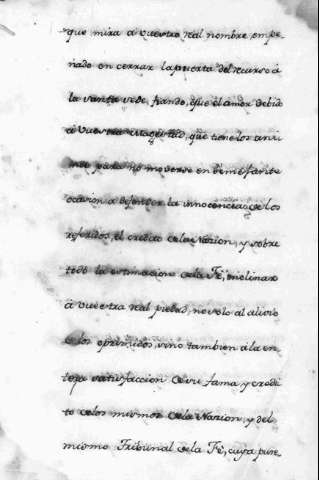 que mira a vuestro real nombre empe-
ñado en cerrar la puerta del recurso á
la santa sede, fiando, que el amor debido
á Vuestra Magestad, que tiene los ani
mos para no moverse en
ocasion a defender la innocencia de los
referidos, el credito de la Nacion, y sobre
todo la estimacion de la Fé, inclinará
á vuestra real piedad, no solo al alivio
de los oprimidos, sino tambien á la en-
tera satisfaccion de su fama y credi
to de los mismos de la Nacion, y del
mismo Tribunal de la Fé, cuya pure